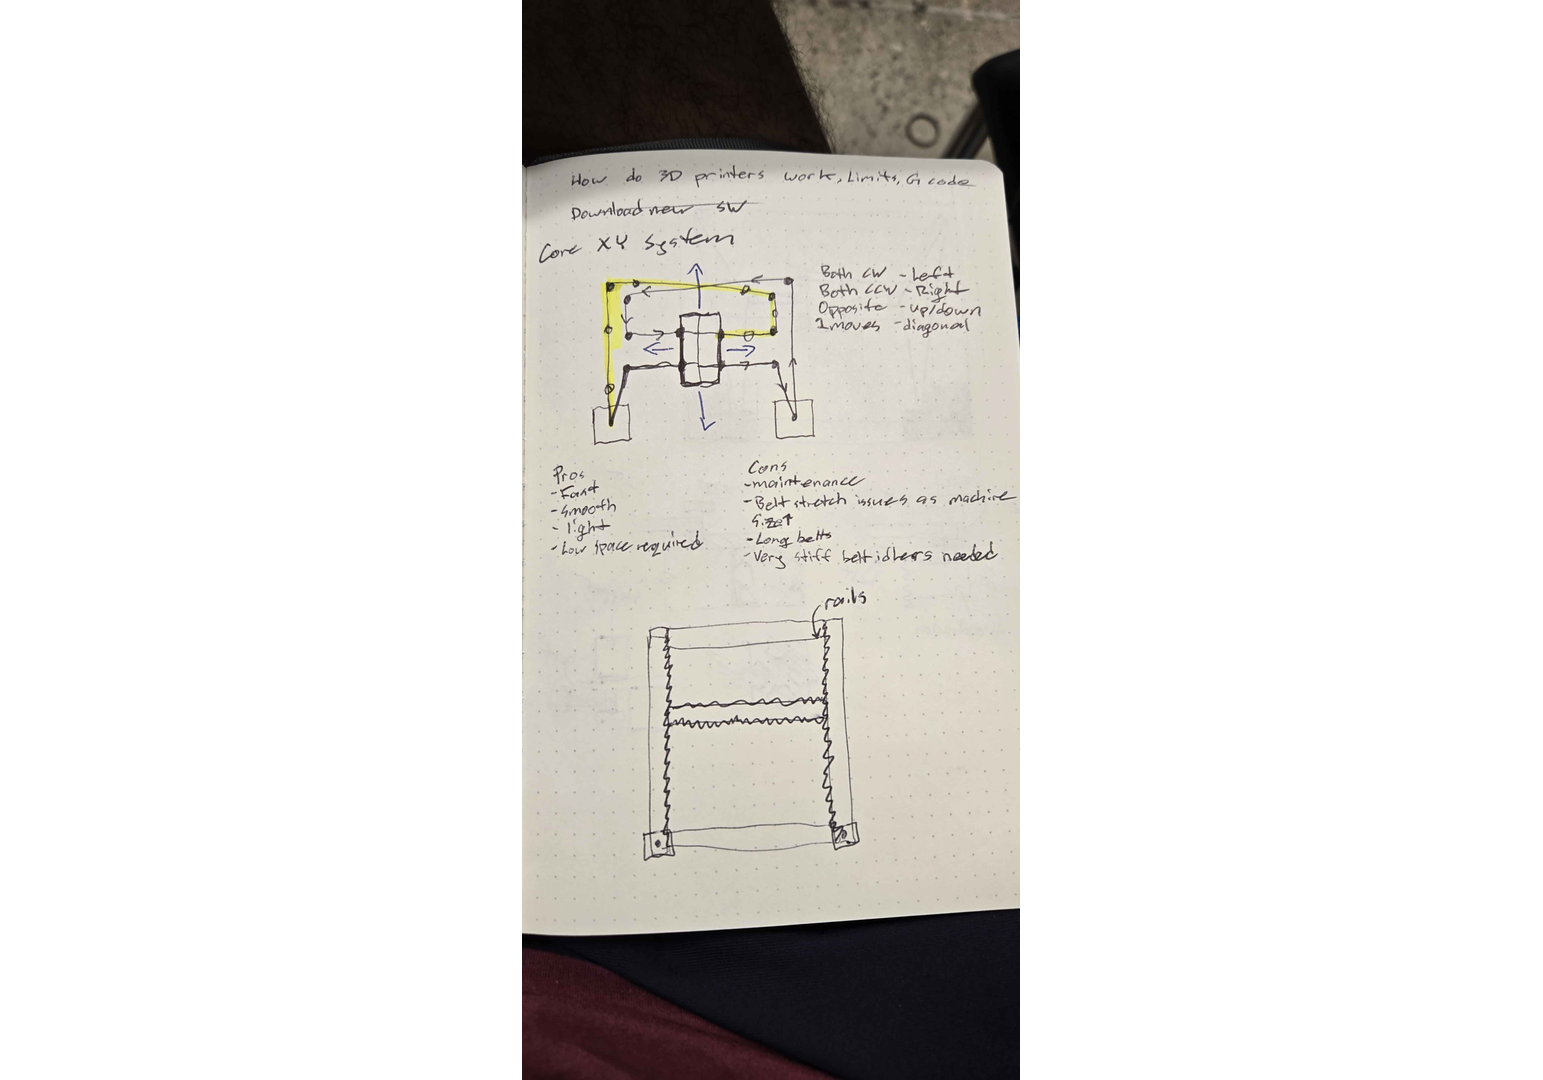 How do 3D printers work, Limits, G code
Download new SW
Core XY System
Both CW - Left
Both CCW - Right
Opposite - up/down
1 moves - diagonal
Pros
- Fast
- Smooth
- light
- Low space required
Cons
- maintenance
- Belt stretch issues as machine
Size↑
- Long belts
- Very stiff belt idlers needed
rails